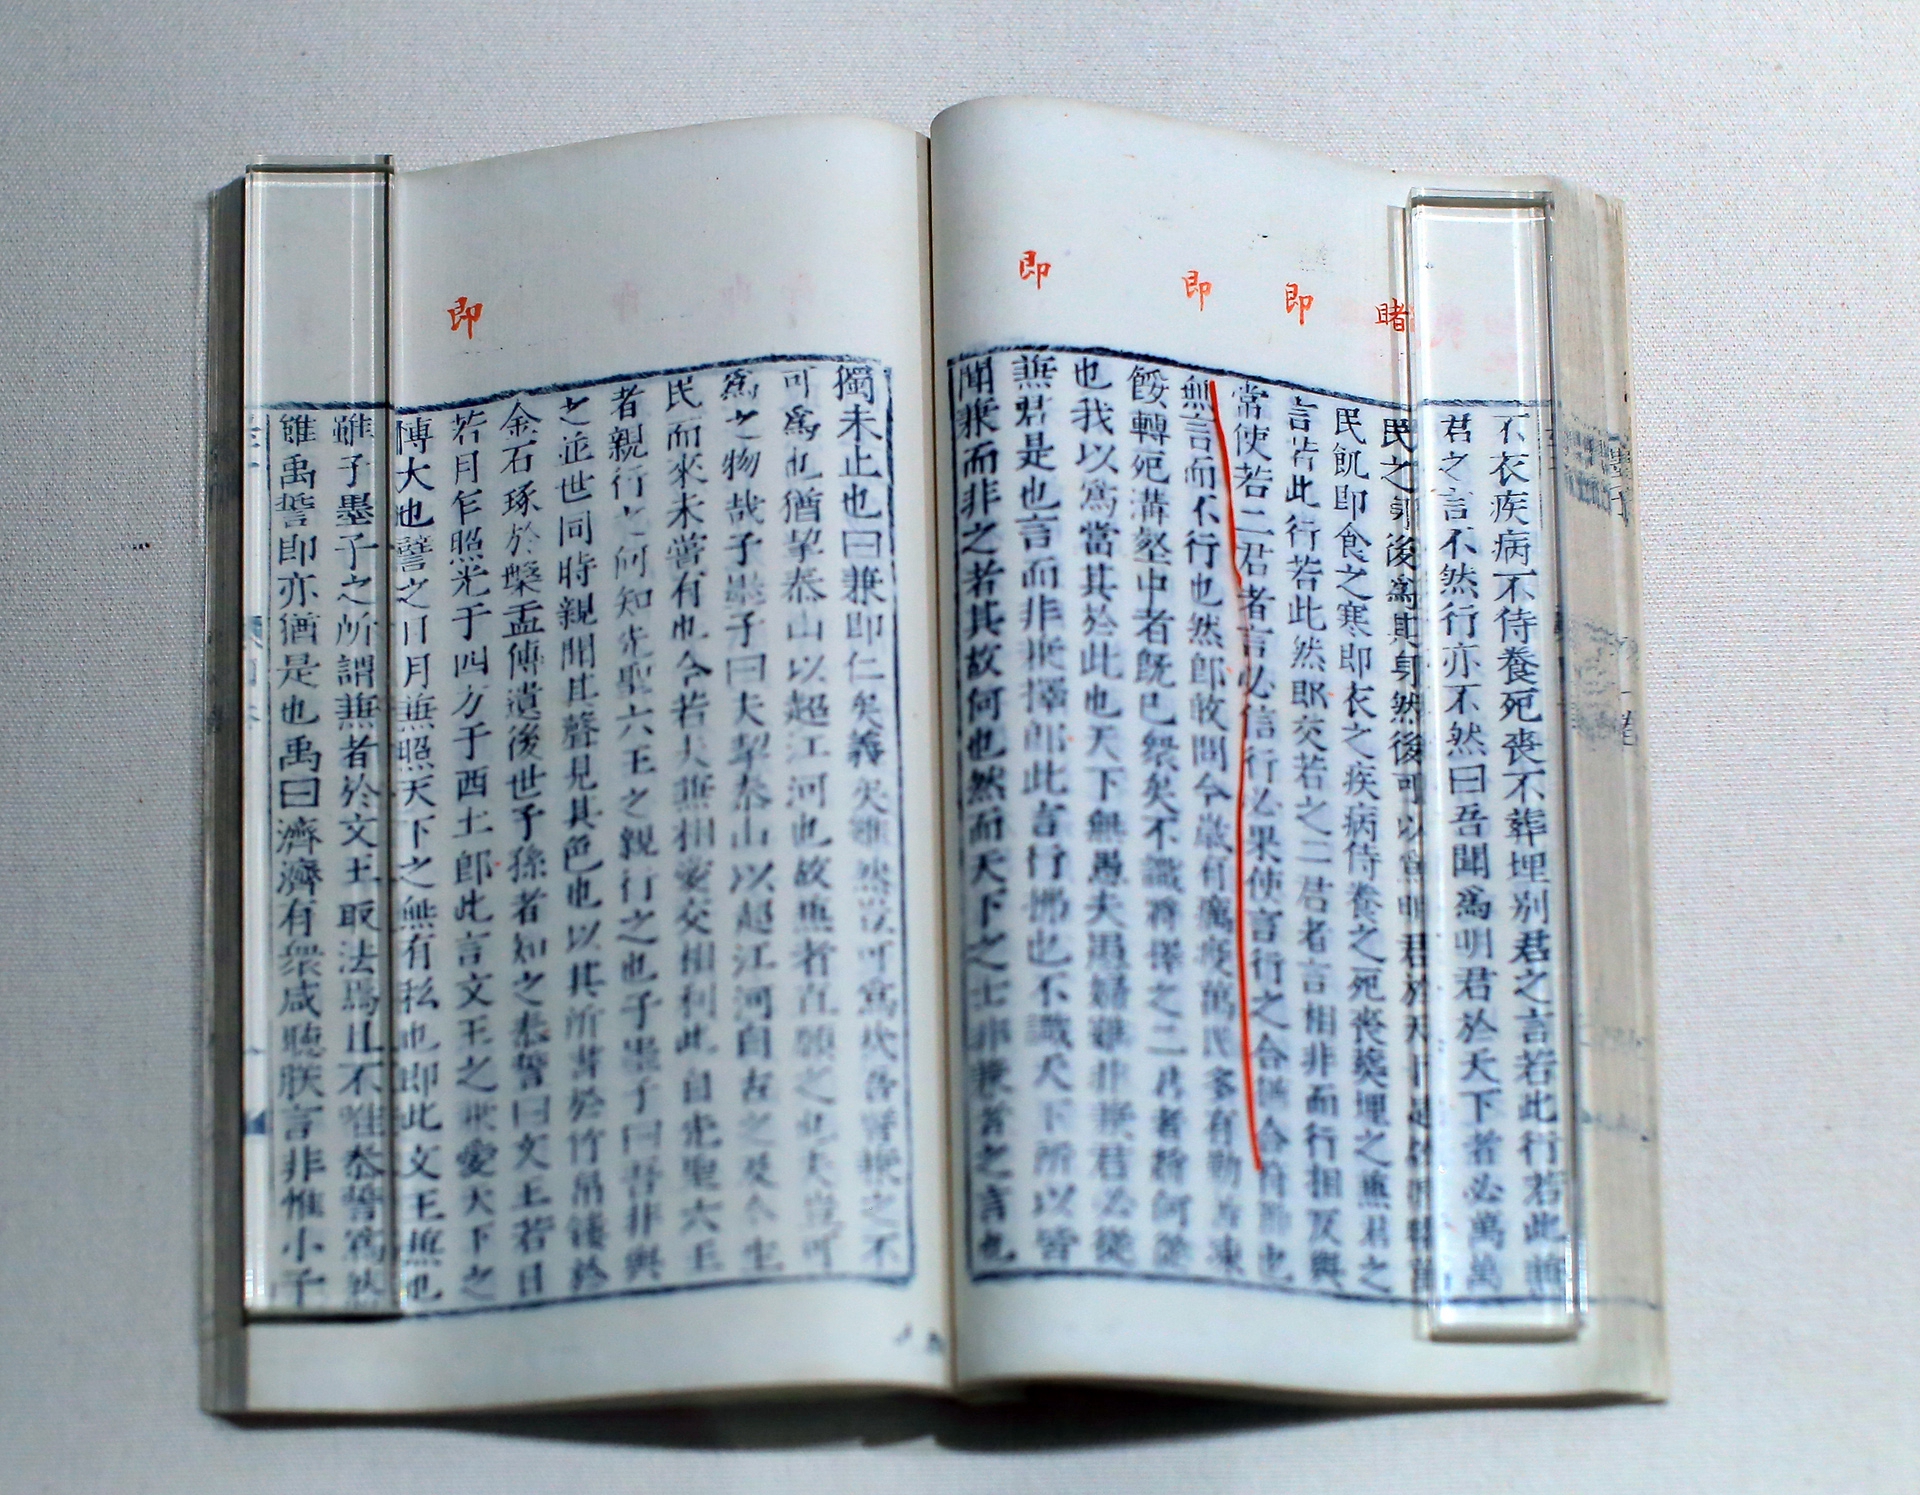 睹
即
即
即
不衣疾病不待養死喪不葬埋别君之言若此行若此兼
君之言不然行亦不然曰吾聞爲明君於天下者必萬萬
民之身後爲其身然後可以爲明君於天下是故退睹萬
民飢即食之寒即衣之疾病侍養之死喪葬埋之兼君之
言若此行若此然即交若之二君者言相非而行相反與
常使若二君者言必信行必果使言行之合猶合符節也
無言而不行也然郎敢問今歲有癘疫萬民多有勤苦凍
餒轉死溝壑中者既已衆矣不識將擇之二君者將何從
也我以爲當其於此也天下無愚夫愚婦雖非兼君必從
兼君是也言而非兼擇郎此言行拂也不識天下所以皆
聞兼而非之若其故何也然而天下之士非兼者之言也
即
獨未止也曰兼即仁矣義矣雖然豈可爲哉吾譬兼之不
可爲也猶挈泰山以超江河也故兼者直願之也夫豈可
爲之物哉子墨子曰夫挈泰山以超江河自古之及今生
民而來未嘗有也今若夫兼相愛交相利此自先聖六王
者親行之何知先聖六王之親行之也子墨子曰吾非與
之並世同時親聞其聲見其色也以其所書於竹帛鏤於
金石琢於槃盂傳遺後世子孫者知之泰誓曰文王若日
若月乍照光于四方于西土郎此言文王之兼愛天下之
博大也譬之日月兼照天下之無有私也即此文王兼也
雖子墨子之所謂兼者於文王取法焉且不唯泰誓爲然
雖禹誓即亦猶是也禹曰濟濟有衆咸聽朕言非惟小子